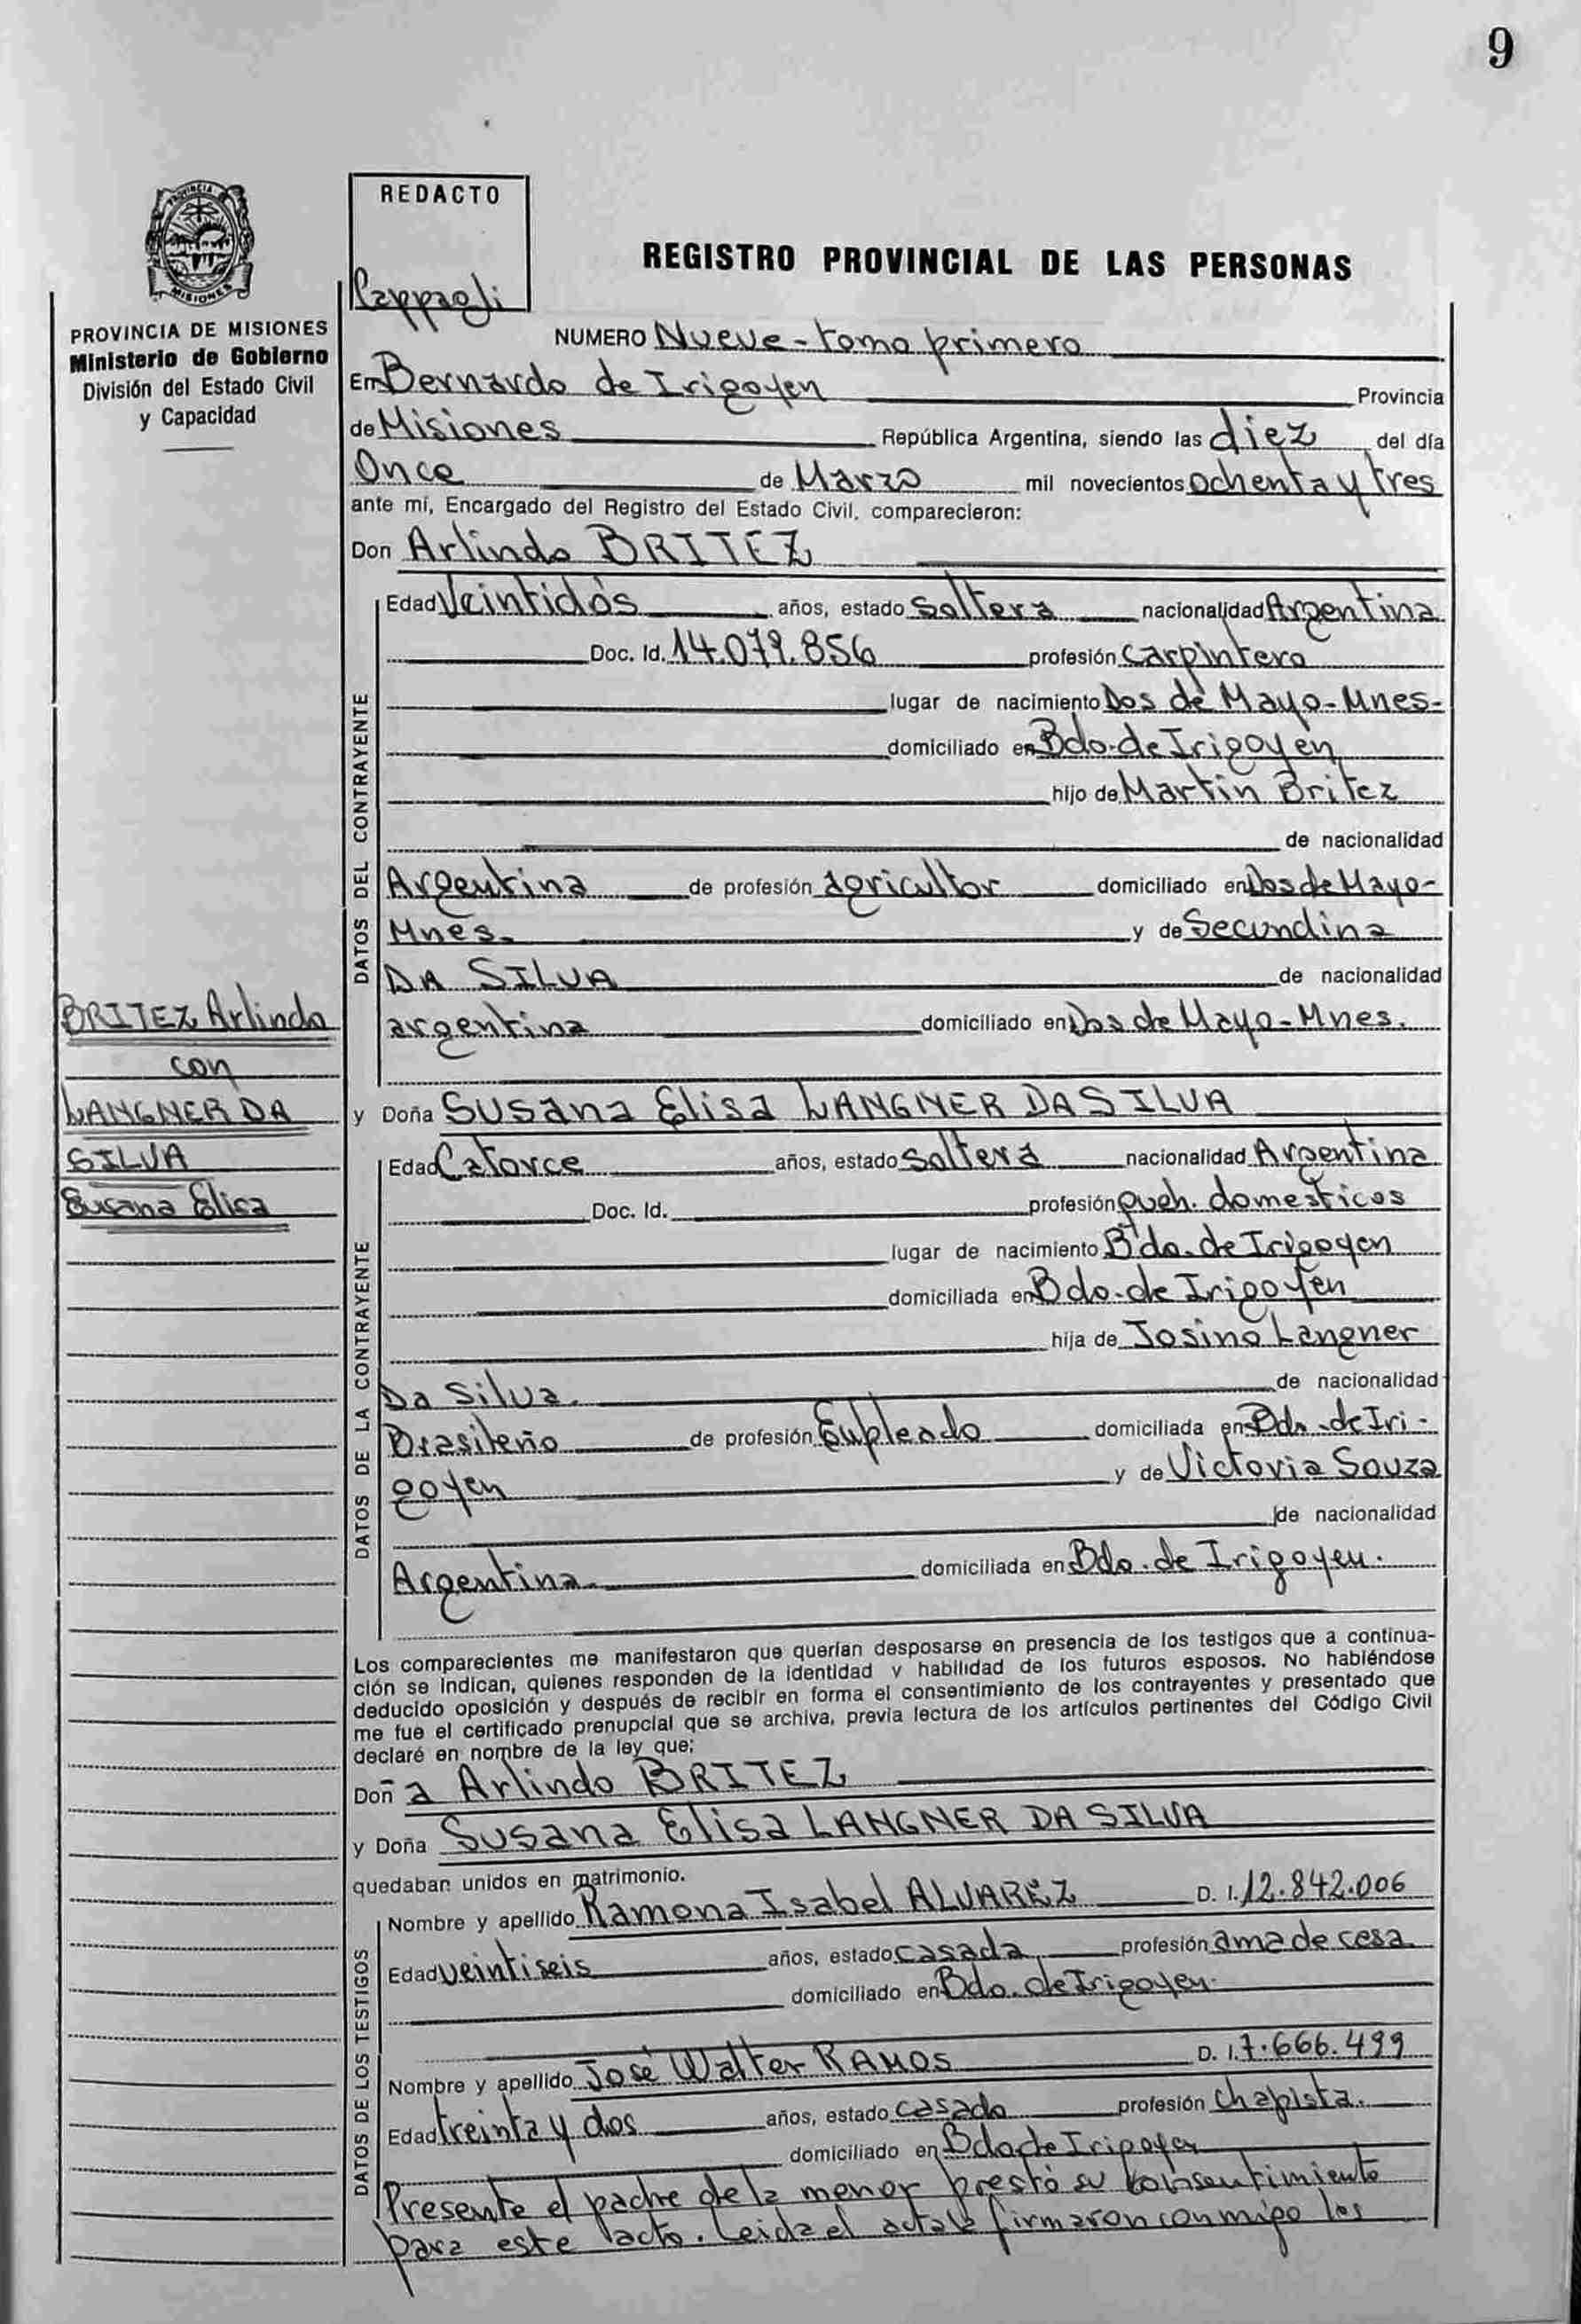 9
REDACTO
PROVINCIA
MISIONES
REGISTRO PROVINCIAL DE LAS PERSONAS
PROVINCIA DE MISIONES
Ministerio de Gobierno
División del Estado Civil
y Capacidad
NUMERO Nueve - tomo primero
En Bernardo de Irigoyen Provincia
de Misiones República Argentina, siendo las diez del día
Once de Marzo mil novecientos ochenta y tres
ante mí, Encargado del Registro del Estado Civil, comparecieron:
Don Arlindo BRITEZ
DATOS DEL CONTRAYENTE
Edad Veintidós años, estado soltera nacionalidad Argentina
Doc. Id. 14.079.856 profesión carpintero
lugar de nacimiento Dos de Mayo - Mnes-
domiciliado en Bdo. de Irigoyen
hijo de Martin Britez
de nacionalidad
Argentina de profesión agricultor domiciliado en Dos de Mayo-
Mnes. y de Secundina
DA SILVA de nacionalidad
argentina domiciliado en Dos de Mayo-Mnes.
BRITEZ Arlindo
con
LANGNER DA
SILVA
Susana Elisa
y Doña Susana Elisa LANGNER DA SILVA
DATOS DE LA CONTRAYENTE
Edad Catorce años, estado soltera nacionalidad Argentina
Doc. Id. profesión queh. domesticos
lugar de nacimiento Bdo. de Irigoyen
domiciliada en Bdo. de Irigoyen
hija de Josino Langner
Da Silva. de nacionalidad
Brasileño de profesión Empleado domiciliada en Bdo. de Iri-
goyen y de Victoria Souza
de nacionalidad
Argentina domiciliada en Bdo. de Irigoyen.
Los comparecientes me manifestaron que querían desposarse en presencia de los testigos que a continua-
ción se indican, quienes responden de la identidad y habilidad de los futuros esposos. No habiéndose
deducido oposición y después de recibir en forma el consentimiento de los contrayentes y presentado que
me fue el certificado prenupcial que se archiva, previa lectura de los artículos pertinentes del Código Civil
declaré en nombre de la ley que;
Doñ a Arlindo BRITEZ
y Doña Susana Elisa LANGNER DA SILVA
quedaban unidos en matrimonio.
DATOS DE LOS TESTIGOS
Nombre y apellido Ramona Isabel ALVAREZ D. I. 12.842.006
Edad veintiseis años, estado casada profesión ama de casa
domiciliado en Bdo. de Irigoyen.
Nombre y apellido José Walter RAMOS D. I. 7.666.499
Edad treinta y dos años, estado casado profesión chapista.
domiciliado en Bdo de Irigoyen
Presente el padre de la menor prestó su consentimiento
para este acto. Leida el acta firmaron conmigo los